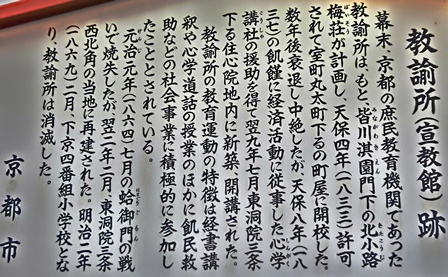 教諭所（宣教館）跡
幕末、京都の庶民教育機関であった
教諭所は、もと、皆川淇園門下の北小路
梅荘が計画し、天保四年（一八三三）許可
されて室町丸太町下るの町屋に開校した。
数年後衰退し中絶したが、天保八年（一八
三七）の飢饉に経済活動に従事した心学
講社の援助を得て翌九年七月東洞院三条
下る住心院地内に新築、開講された。
教諭所の教育運動の特徴は経書講
釈や心学道話の授業のほかに飢民救
助などの社会事業に積極的に参加し
たことである。
元治元年（一八六四）七月の蛤御門の戦
いで焼失したが、翌二年二月、東洞院三条
西北角の当地に再建された。明治二年
（一八六九）二月、下京四番組小学校とな
り、教諭所は消滅した。
京都市